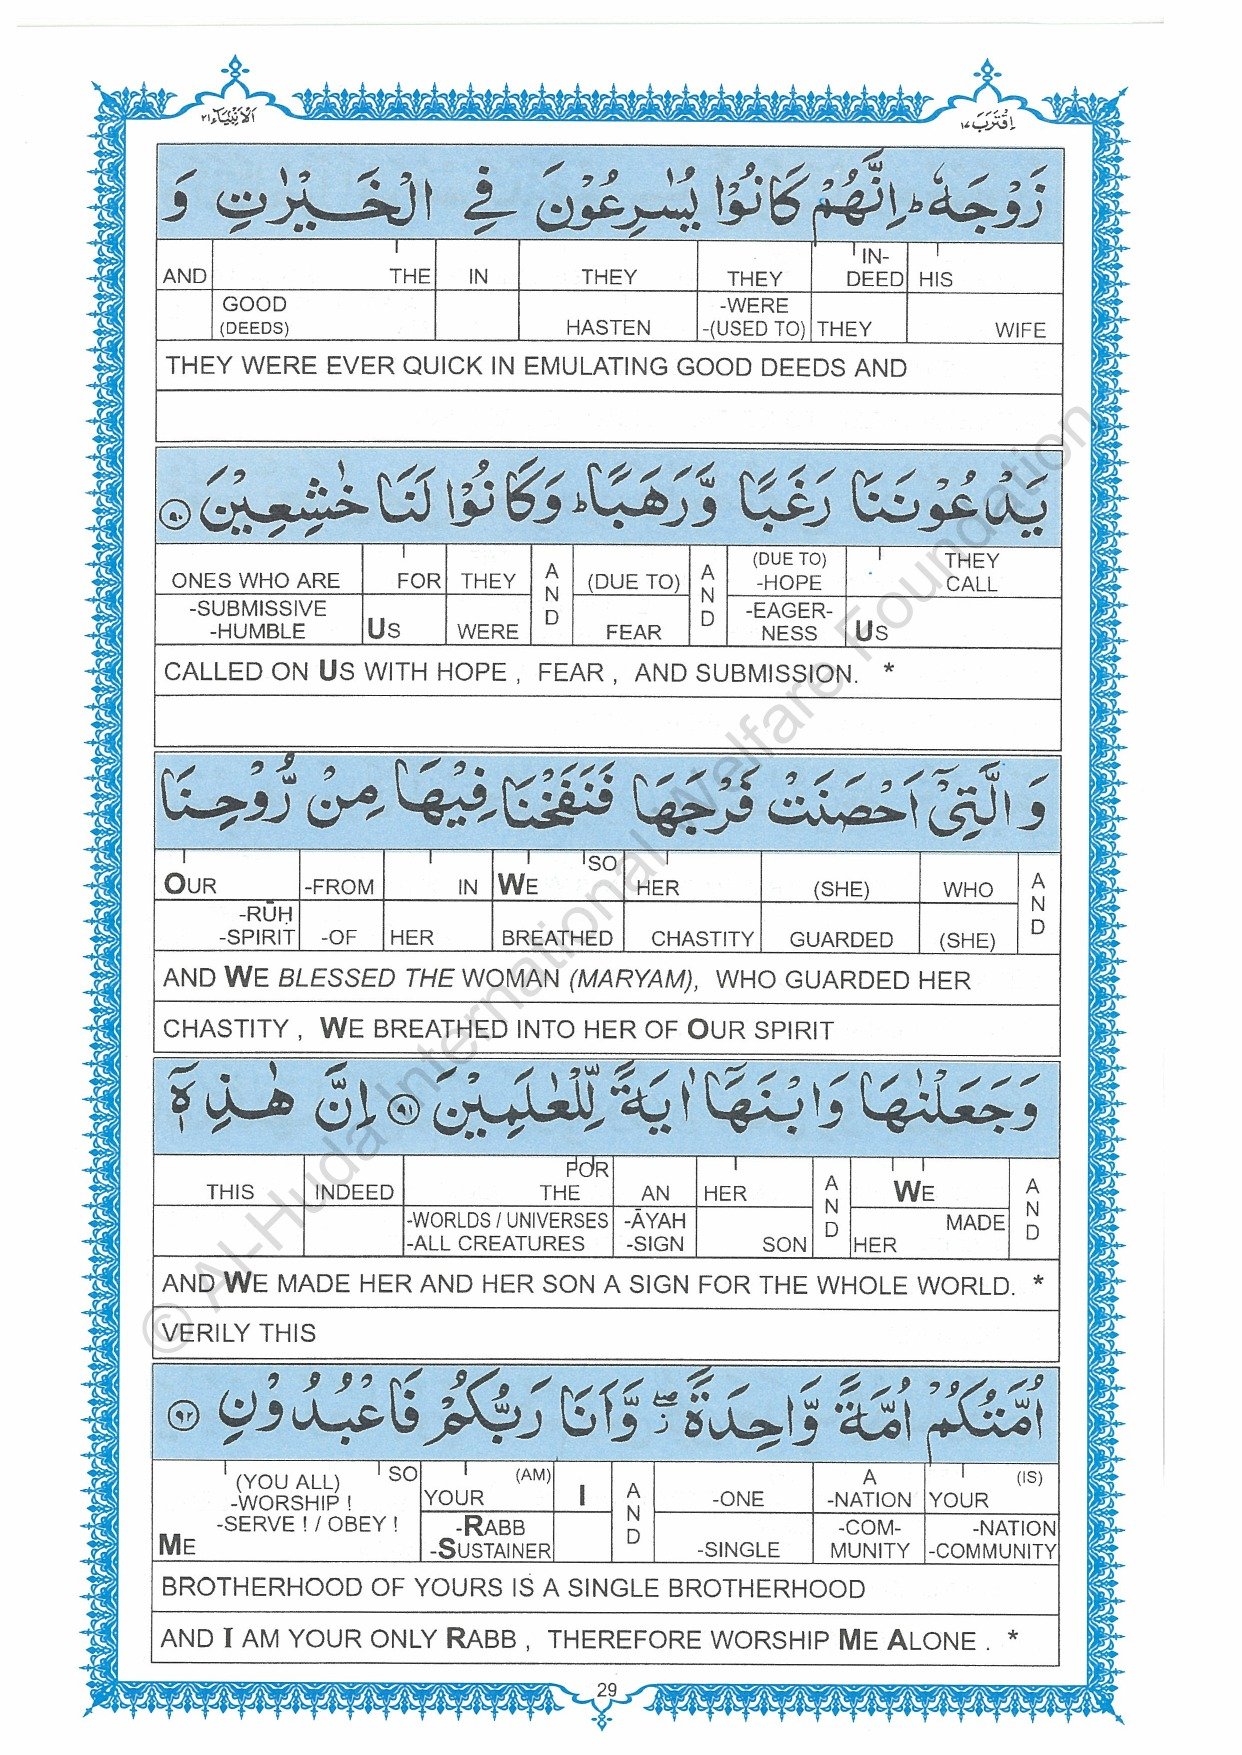 اَلْاَنْبِيَآء ٢١
اِقْتَرَبَ ١٧
زَوْجَهٗ ؕ اِنَّهُمْ كَانُوْا يُسٰرِعُوْنَ فِي الْخَيْرٰتِ وَ
AND THE IN THEY THEY IN-DEED HIS
GOOD (DEEDS) HASTEN -WERE -(USED TO) THEY WIFE
THEY WERE EVER QUICK IN EMULATING GOOD DEEDS AND
يَدْعُوْنَنَا رَغَبًا وَّرَهَبًا ؕ وَكَانُوْا لَنَا خٰشِعِيْنَ ٩٠
ONES WHO ARE FOR THEY AND (DUE TO) AND (DUE TO) -HOPE THEY CALL
-SUBMISSIVE -HUMBLE US WERE FEAR -EAGER-NESS US
CALLED ON US WITH HOPE , FEAR , AND SUBMISSION. *
وَالَّتِيْٓ اَحْصَنَتْ فَرْجَهَا فَنَفَخْنَا فِيْهَا مِنْ رُّوْحِنَا
OUR -FROM IN WE SO HER (SHE) WHO AND
-RŪḤ -SPIRIT -OF HER BREATHED CHASTITY GUARDED (SHE)
AND WE BLESSED THE WOMAN (MARYAM), WHO GUARDED HER
CHASTITY , WE BREATHED INTO HER OF OUR SPIRIT
وَجَعَلْنٰهَا وَابْنَهَآ اٰيَةً لِّلْعٰلَمِيْنَ ٩١ اِنَّ هٰذِهٖٓ
THIS INDEED FOR THE AN HER AND WE AND
-WORLDS / UNIVERSES -ALL CREATURES -ĀYAH -SIGN SON MADE HER
AND WE MADE HER AND HER SON A SIGN FOR THE WHOLE WORLD. *
VERILY THIS
اُمَّتُكُمْ اُمَّةً وَّاحِدَةً ۖ وَّاَنَا رَبُّكُمْ فَاعْبُدُوْنِ ٩٢
(YOU ALL) -WORSHIP ! SO YOUR (AM) I AND -ONE A -NATION YOUR (IS)
ME -SERVE ! / OBEY ! -RABB -SUSTAINER -SINGLE -COM-MUNITY -NATION -COMMUNITY
BROTHERHOOD OF YOURS IS A SINGLE BROTHERHOOD
AND I AM YOUR ONLY RABB , THEREFORE WORSHIP ME ALONE . *
29
© Al-Huda International Welfare Foundation